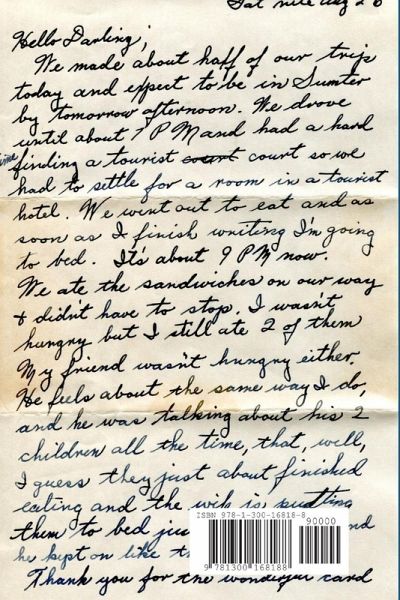 Sat nite Aug 26
Hello Darling,
We made about haff of our trip
today and expect to be in Sumter
by tomorrow afternoon. We drove
until about 7 PM and had a hard
time finding a tourist court court so we
had to settle for a room in a tourist
hotel. We went out to eat and as
soon as I finish writing I'm going
to bed. It's about 9 PM now.
We ate the sandwiches on our way
& didn't have to stop. I wasn't
hungry but I still ate 2 of them
My friend wasn't hungry either.
He feels about the same way I do,
and he was talking about his 2
children all the time, that, well,
I guess they just about finished
eating and the wife is putting
them to bed
he kept on like
Thank you for the wonderful card
ISBN 978-1-300-16818-8
90000
9 781300 168188